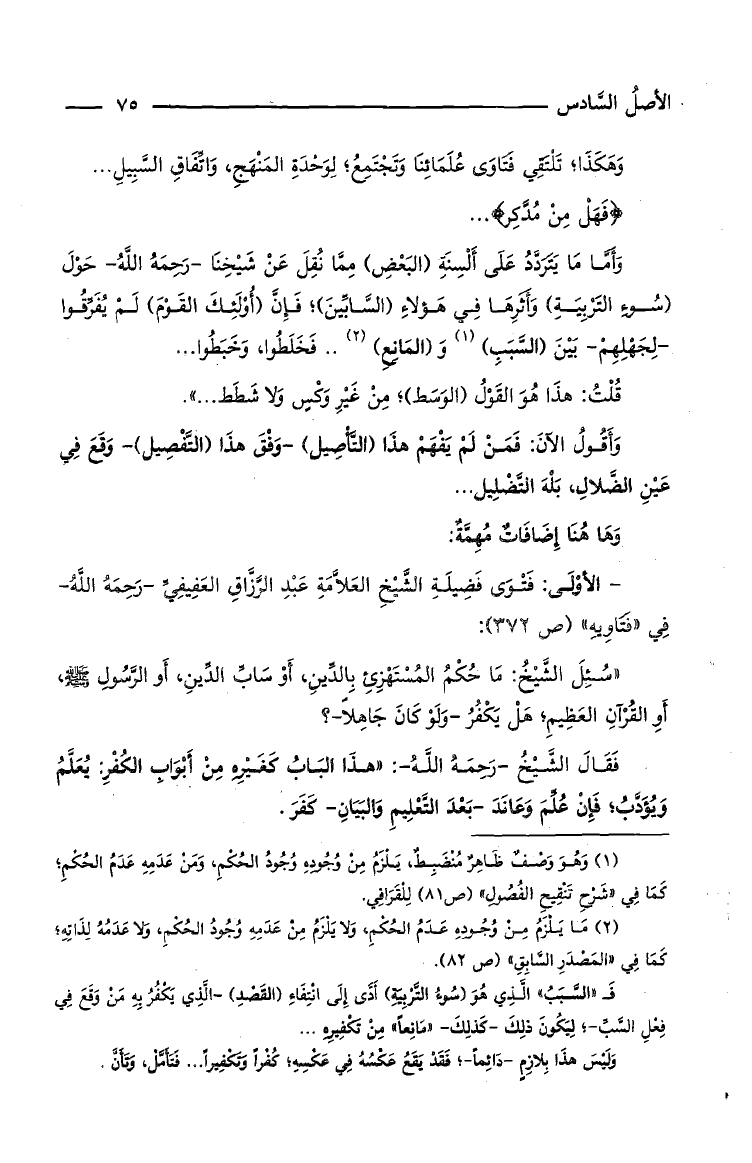 الأصلُ السَّادس ــــــــــــــــــــــــــــــــــــــــــــــ ٧٥ ـــ
وَهَكَذَا؛ تَلْتَقِي فَتَاوَى عُلَمَائِنَا وَتَجْتَمِعُ؛ لِوَحْدَةِ المَنْهَجِ، وَاتِّفَاقِ السَّبِيلِ...
﴿فَهَلْ مِنْ مُدَّكِر﴾...
وَأَمَّا مَا يَتَرَدَّدُ عَلَى أَلْسِنَةِ (البَعْضِ) مِمَّا نُقِلَ عَنْ شَيْخِنَا -رَحِمَهُ اللَّهُ- حَوْلَ
(سُوءِ التَّرْبِيَةِ) وَأَثَرِهَا فِي هَؤلاءِ (السَّابِّينَ)؛ فَإِنَّ (أُوْلَئِكَ القَوْمَ) لَمْ يُفَرِّقُوا
-لِجَهْلِهِمْ- بَيْنَ (السَّبَبِ) (١) وَ (المَانِعِ) (٢) .. فَخَلَطُوا، وَخَبَطُوا...
قُلْتُ: هذَا هُوَ القَوْلُ (الوَسَط)؛ مِنْ غَيْرِ وَكْسٍ وَلا شَطَط...».
وَأَقُولُ الآنَ: فَمَنْ لَمْ يَفْهَمْ هذَا (التَّأْصِيل) -وَفْقَ هذَا (التَّفْصِيل)- وَقَعَ فِي
عَيْنِ الضَّلالِ، بَلْهَ التَّضْلِيل...
وَهَا هُنَا إِضَافَاتٌ مُهِمَّةٌ:
- الأوْلَى: فَتْوَى فَضِيلَةِ الشَّيْخِ العَلاَّمَةِ عَبْدِ الرَّزَّاقِ العَفِيفِيِّ -رَحِمَهُ اللَّهُ-
فِي «فَتَاوِيهِ» (ص ٣٧٢):
«سُئِلَ الشَّيْخُ: مَا حُكْمُ المُسْتَهْزِئِ بِالدِّينِ، أَوْ سَابِّ الدِّينِ، أَوِ الرَّسُولِ ﷺ،
أَوِ القُرْآنِ العَظِيمِ؛ هَلْ يَكْفُرُ -وَلَوْ كَانَ جَاهِلاً-؟
فَقَالَ الشَّيْخُ -رَحِمَهُ اللَّهُ-: «هذَا البَابُ كَغَيْرِهِ مِنْ أَبْوَابِ الكُفْرِ: يُعَلَّمُ
وَيُؤَدَّبُ؛ فَإِنْ عُلِّمَ وَعَانَدَ -بَعْدَ التَّعْلِيمِ وَالبَيَانِ- كَفَرَ.
(١) وَهُوَ وَصْفٌ ظَاهِرٌ مُنْضَبِطٌ، يَلْزَمُ مِنْ وُجُودِهِ وُجُودُ الحُكْمِ، وَمَنْ عَدَمِهِ عَدَمُ الحُكْمِ؛
كَمَا فِي «شَرْحِ تَنْقِيحِ الفُصُولِ» (ص٨١) لِلْقَرَافِي.
(٢) مَا يَلْزَمُ مِنْ وُجُودِهِ عَدَمُ الحُكْمِ، وَلا يَلْزَمُ مِنْ عَدَمِهِ وُجُودُ الحُكْمِ، وَلا عَدَمُهُ لِذَاتِهِ؛
كَمَا فِي «المَصْدَرِ السَّابِقِ» (ص ٨٢).
فَـ «السَّبَبُ» الَّذِي هُوَ (سُوءُ التَّرْبِيَةِ) أَدَّى إِلَى انْتِفَاءِ (القَصْدِ) -الَّذِي يَكْفُرُ بِهِ مَنْ وَقَعَ فِي
فِعْلِ السَّبِّ-؛ لِيَكُونَ ذلِكَ -كَذلِكَ- «مَانِعاً» مِنْ تَكْفِيرِهِ ...
وَلَيْسَ هذَا بِلازِمٍ -دَائِماً-؛ فَقَدْ يَقَعُ عَكْسُهُ فِي عَكْسِهِ؛ كُفْراً وَتَكْفِيراً... فَتَأَمَّلْ، وَتَأَنَّ .